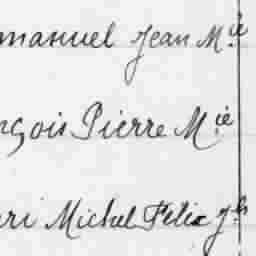 manuel Jean M.ie
nçois Pierre M.ie
ri Michel Felix J.h